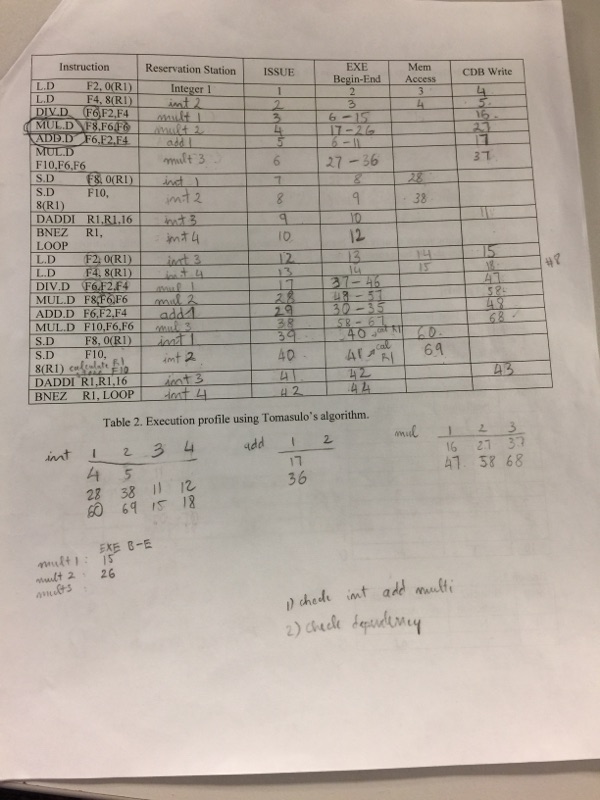 Instruction Reservation Station ISSUE EXE Begin-End Mem Access CDB Write
L.D F2, 0(R1) Integer 1 1 2 3 4
L.D F4, 8(R1) int 2 2 3 4 5
DIV.D F6,F2,F4 mult 1 3 6-15 16
MUL.D F8,F6,F6 mult 2 4 17-26 27
ADD.D F6,F2,F4 add 1 5 6-11 17
MUL.D F10,F6,F6 mult 3 6 27-36 37
S.D F8, 0(R1) int 1 7 8 28
S.D F10, 8(R1) int 2 8 9 38
DADDI R1,R1,16 int 3 9 10 11
BNEZ R1, LOOP int 4 10 12
L.D F2, 0(R1) int 3 12 13 14 15
L.D F4, 8(R1) int 4 13 14 15 18
DIV.D F6,F2,F4 mul 1 17 37-46 47
MUL.D F8,F6,F6 mul 2 28 48-57 58
ADD.D F6,F2,F4 add 1 29 30-35 48
MUL.D F10,F6,F6 mul 3 38 58-67 68
S.D F8, 0(R1) int 1 39 40 cal R1 60
S.D F10, 8(R1) calculate R1 int 2 40 41 cal R1 69
DADDI R1,R1,16 int 3 41 42 43
BNEZ R1, LOOP int 4 42 44
Table 2. Execution profile using Tomasulo's algorithm.
int 1 2 3 4
4 5
28 38 11 12
60 69 15 18
add 1 2
17
36
mul 1 2 3
16 27 37
47 58 68
EXE B-E
mult 1: 15
mult 2: 26
mult 3
1) check int add multi
2) check dependency